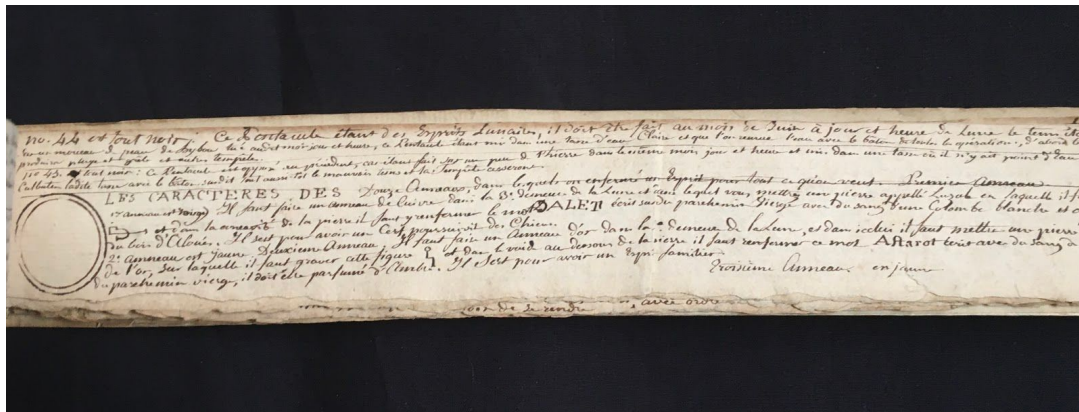 no. 44 est tout noir; Ce Pentacule étant des Esprits Lunaires, il doit être fait au mois de Juin à jour et heure de Lune le tems étant
Claire et que l'on remue l'eau avec le bâton de toute la operation, d'abord
sur un morceau de peau de Hybou tué audit moi jour et heure, ce Pentacule étant mi dans une tasse d'eau
produira pluye et grele et autres tempete.
no 45. tout noir: Ce Pentacule est opposé au précédent, car étant fait sur un peau de Thierre dans le même mois jour et heure et mi dans une tasse où il n'y ait point d'eau
ladite tasse avec le bâton susdit le mauvais tems et la Tempête cesseront.
LES CARACTERES DES Douze Anneaux, dans lesquels on enfermé un Esprit pour tout ce qu'on veut. Premier Anneau
1er anneau est rouge Il faut faire un anneau de Cuivre dans la demeure de la Lune et dans lequel vous mettrez une pierre appellé en laquelle il f
et dans la concavité de la pierre il faut y renfermer le mot DALETI écris sur du parchemin Vierge avec du sang d'une Colombe blanche et
du bois d'Aloües. Il sert pour avoir un Cerf poursuivit des Chiens.
2e anneau est jaune Deuxieme Anneau; Il faut faire un Anneau d'or dans la demeure de la Lune, et dans icelui il faut mettre un pierre
de l'or, sur laquelle il faut graver cette figure et dans le vuide au dessous de la pierre il faut renfermer ce mot ASTAROT écrit avec du sang
du parchemin vierge, il doit être parfumé d'Ambre. Il sert pour avoir un Esprit familier.
Troisième Anneau. en jaune
de se rendre avec ordre